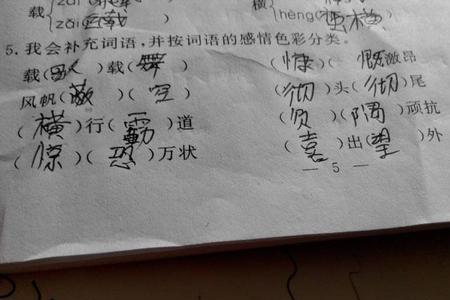 载{zǎi
横{hèng(蛮横)
5.我会补充词语,并按词语的感情色彩分类。
载(歌)载(舞) (慷)(慨)激昂
风帆(蔽)(空) (彻)头(彻)尾
(横)行(霸)道 (负)(隅)顽抗
(惊)(恐)万状 (喜)出(望)外
— 5 —